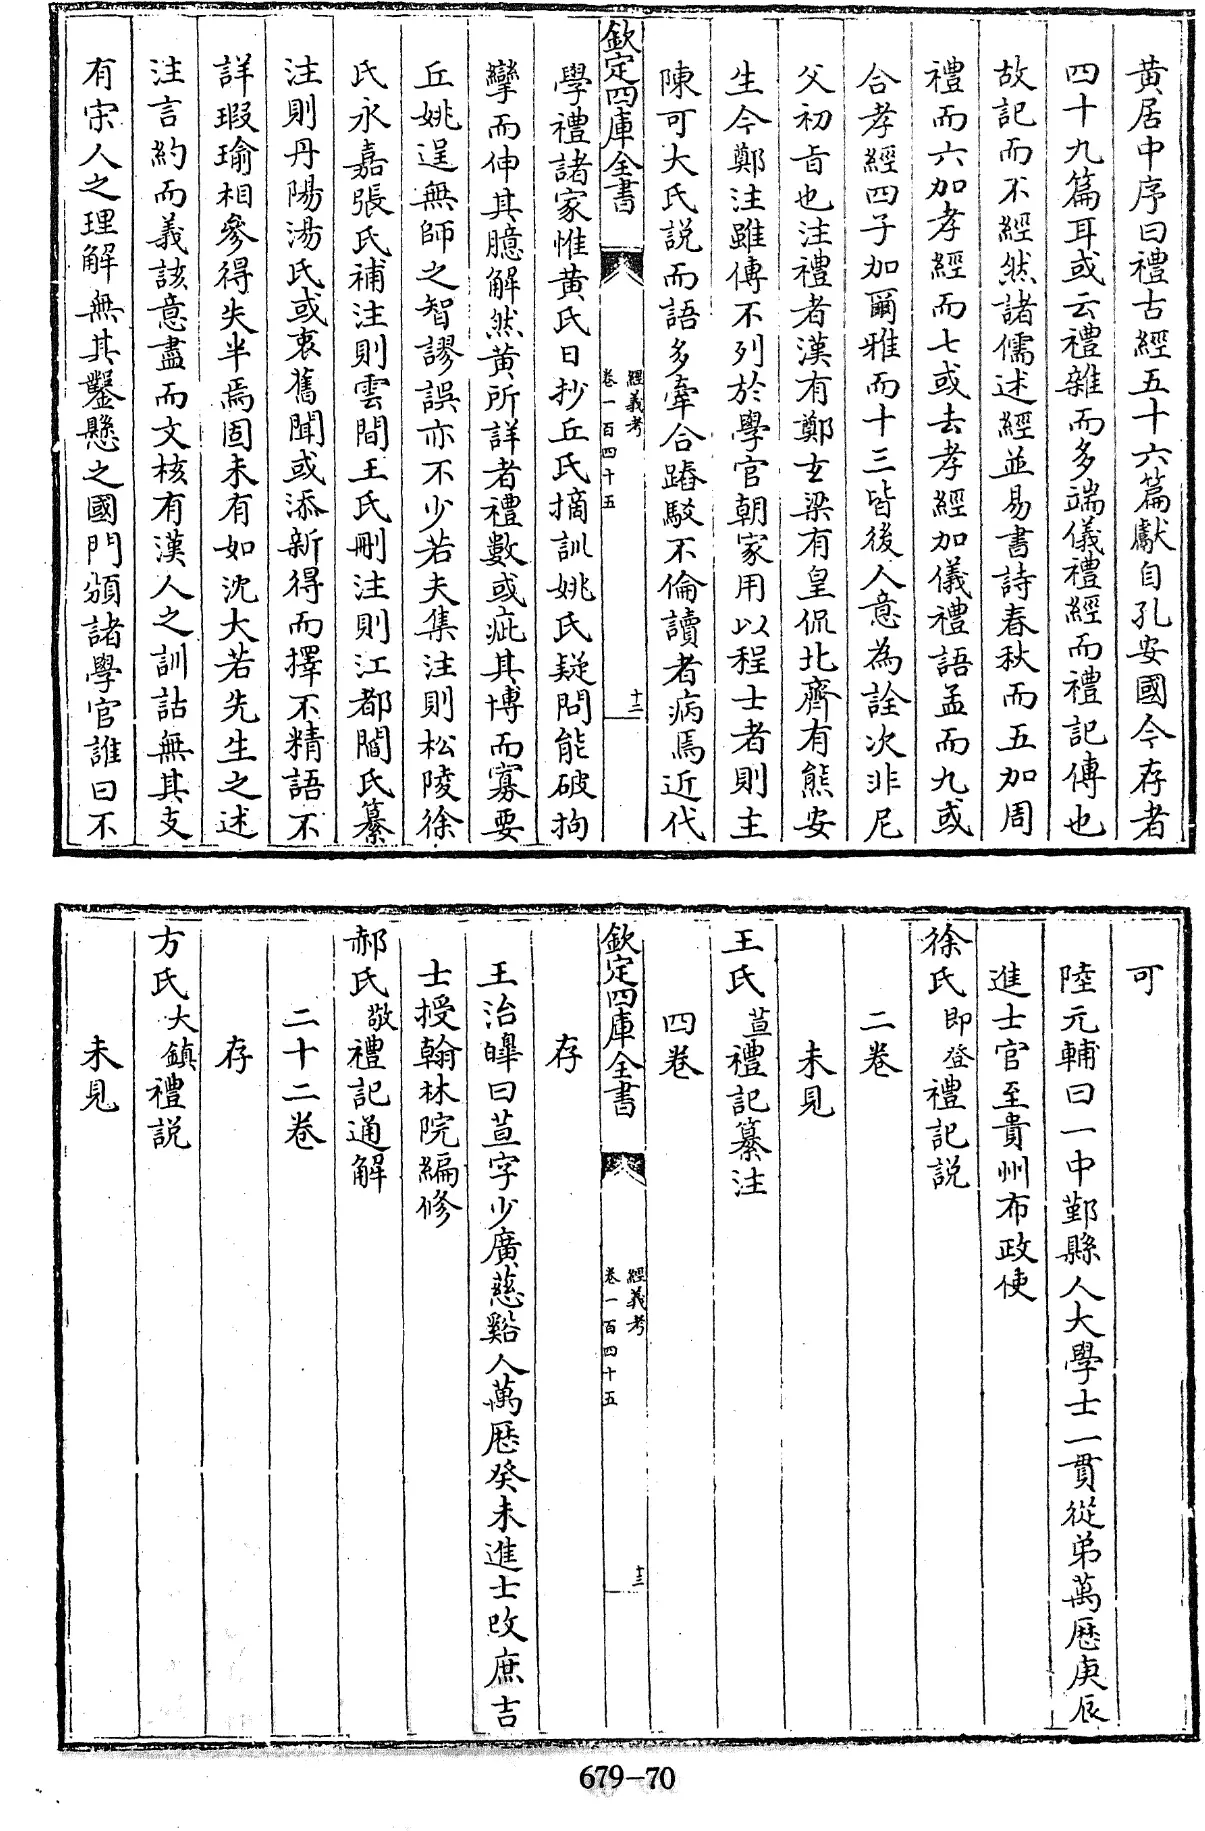 黄居中序曰禮古經五十六篇獻自孔安國今存者
四十九篇耳或云禮雜而多端儀禮經而禮記傳也
故記而不經然諸儒述經並易書詩春秋而五加周
禮而六加孝經而七或去孝經加儀禮語孟而九或
合孝經四子加爾雅而十三皆後人意為詮次非尼
父初旨也注禮者漢有鄭玄梁有皇侃北齊有熊安
生今鄭注雖傳不列於學官朝家用以程士者則主
陳可大氏説而語多牽合踳駁不倫讀者病焉近代
欽定四庫全書
經義考
卷一百四十五
十二
學禮諸家惟黄氏日抄丘氏摘訓姚氏疑問能破拘
攣而伸其臆解然黄所詳者禮數或疵其博而寡要
丘姚逞無師之智謬誤亦不少若夫集注則松陵徐
氏永嘉張氏補注則雲間王氏刪注則江都閻氏纂
注則丹陽湯氏或裒舊聞或添新得而擇不精語不
詳瑕瑜相參得失半焉固未有如沈大若先生之述
注言約而義該意盡而文核有漢人之訓詁無其支
有宋人之理解無其鑿懸之國門頒諸學官誰曰不
可
陸元輔曰一中鄞縣人大學士一貫從弟萬厯庚辰
進士官至貴州布政使
徐氏即登禮記説
二卷
未見
王氏荁禮記纂注
四卷
欽定四庫全書
經義考
卷一百四十五
十三
存
王治皥曰荁字少廣慈谿人萬厯癸未進士改庶吉
士授翰林院編修
郝氏敬禮記通解
二十二卷
存
方氏大鎮禮説
未見
679-70